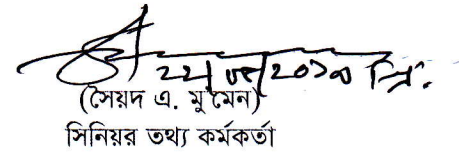 ২২/০৫/২০১৯ খ্রি:
(সৈয়দ এ. মু'মেন)
সিনিয়র তথ্য কর্মকর্তা